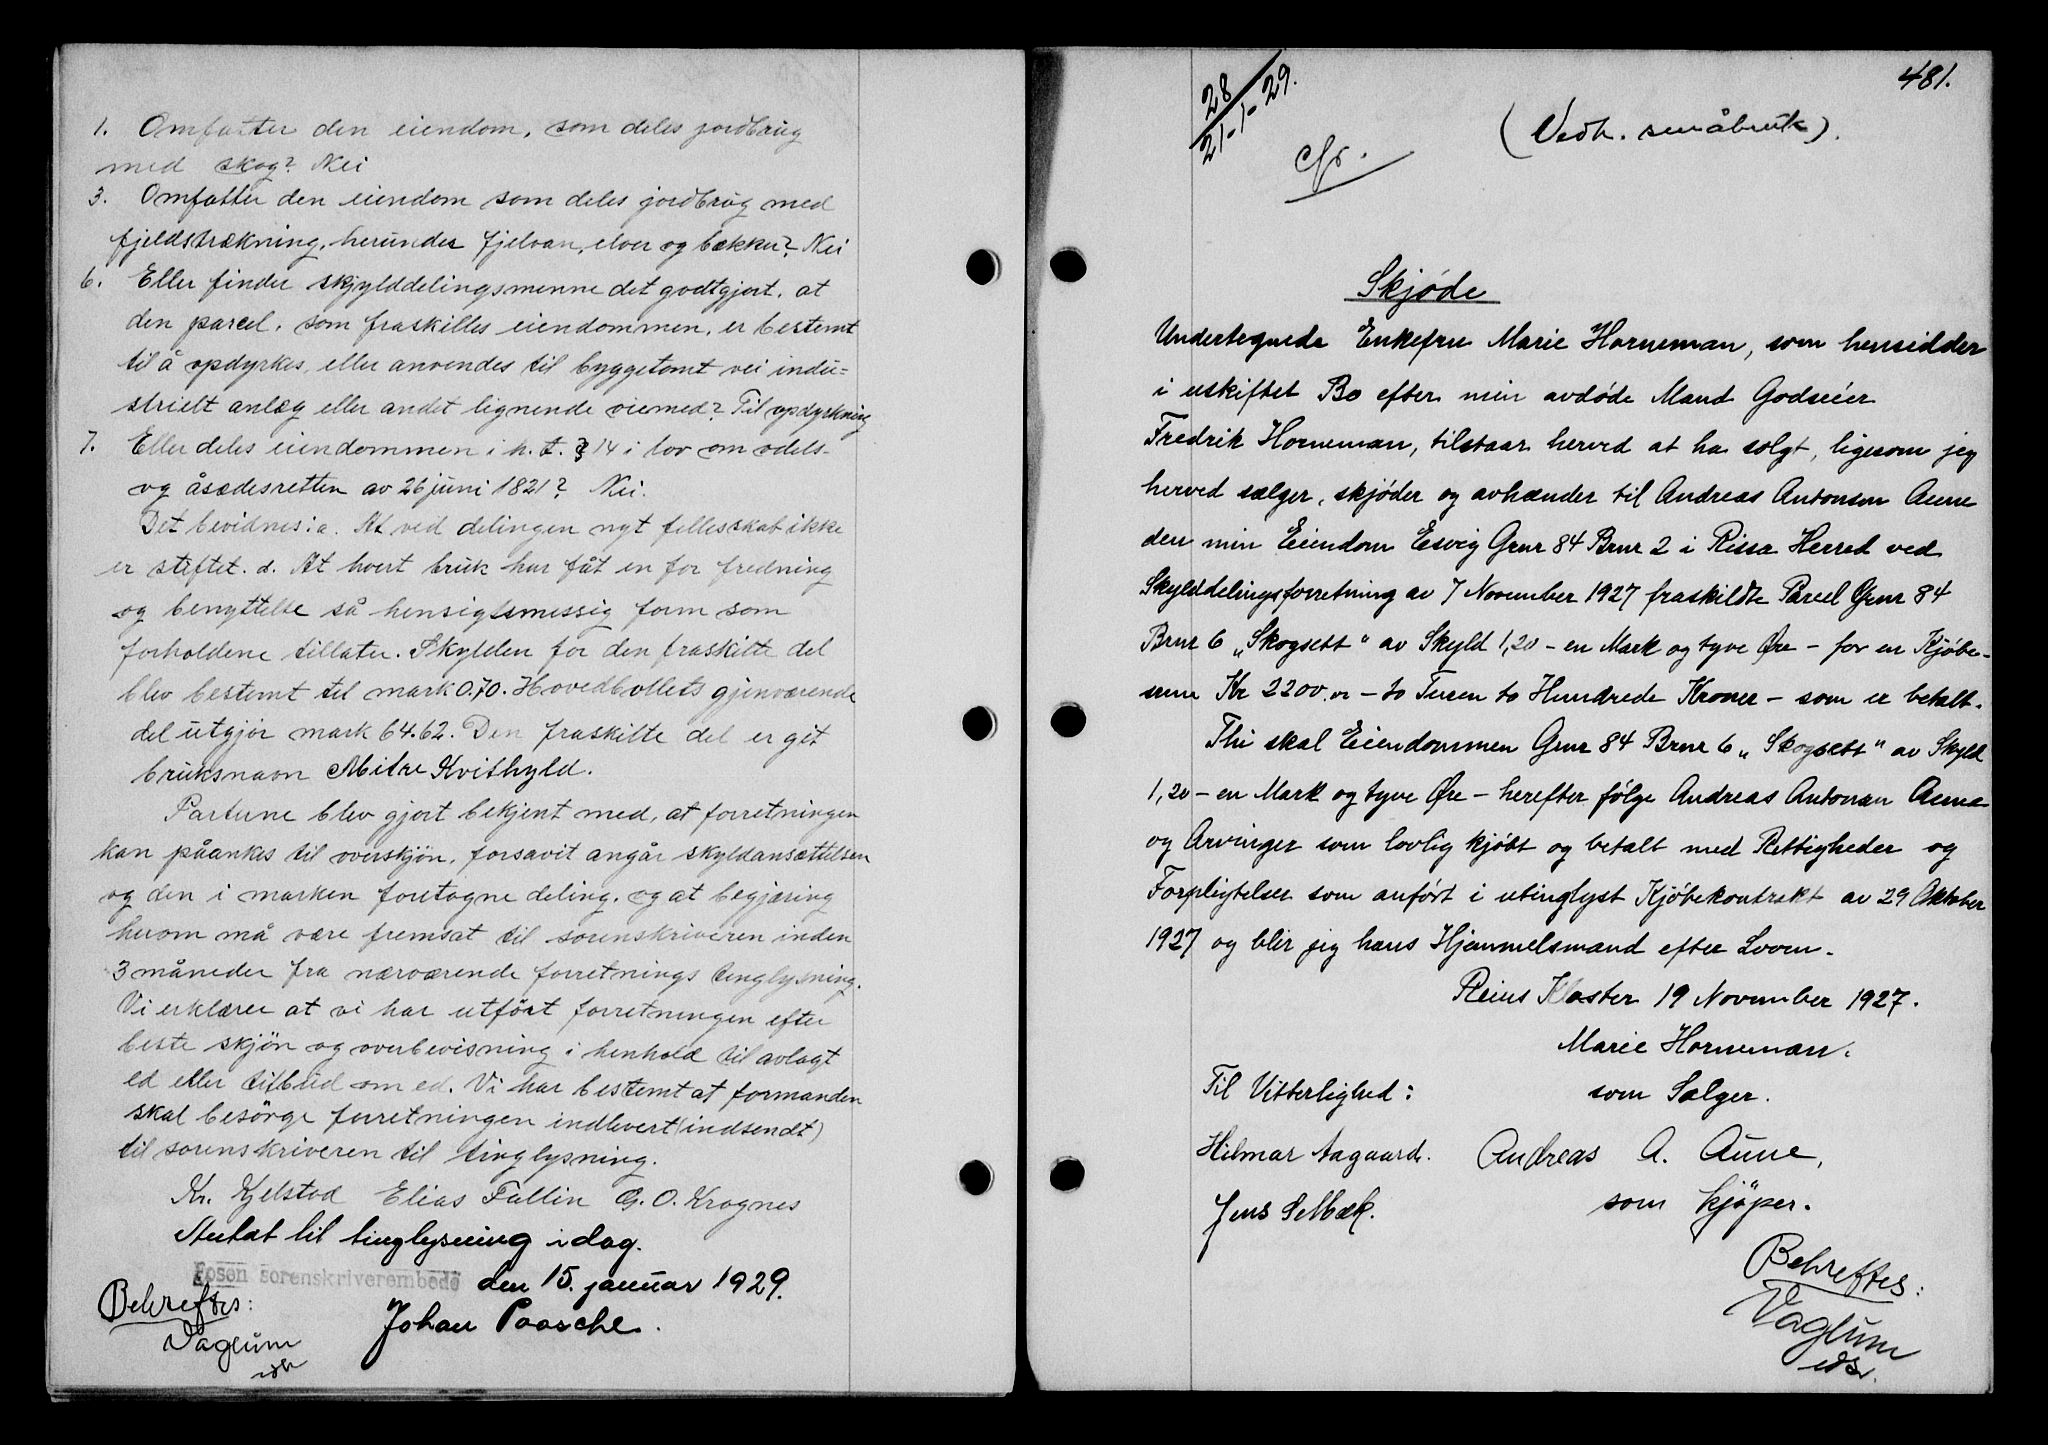 1. Omfatter den eiendom, som deles jordbrug
med skog? Nei
3. Omfatter den eiendom som deles jordbrug med
fjeldstrækning, herunder fjelvan, elver og bekker? Nei
6. Eller finder skjylddelingsmenne det godtgjort, at
den parcel, som fraskilles eiendommen, er bestemt
til å opdyrkes, eller anvendes til byggetomt vei indu-
strielt anlæg eller andet lignende øiemed? Til opdyrkning
7. Eller deles eiendommen i h. t. § 14 i lov om odels-
og åsædesretten av 26 juni 1821? Nei.
Det bevidnes: a. At ved delingen nyt fellesskab ikke
er stiftet. d. At hvert bruk har fåt en for fredning
og benyttelse så hensigtsmessig form som
forholdene tillater. Skylden for den fraskilte del
blev bestemt til mark 0.70. Hovedbøllets gjenværende
del utgjør mark 64.62. Den fraskilte del er git
bruksnavn Mitre Kvithyld.
Partene blev gjort bekjent med, at forretningen
kan påankes til overskjön, forsavit angår skyldansættelsen
og den i marken foretagne deling, og at begjæring
herom må være fremsat til sorenskriveren inden
3 måneder fra nærværende forretnings tinglysning.
Vi erklærer at vi har utfört forretningen efter
beste skjön og overbevisning i henhold til avlagt
ed eller tilbud om ed. Vi har bestemt at formanden
skal besörge forretningen indlevert (indsendt)
til sorenskriveren til tinglysning.
Kr. Kjelstad Elias Fallin G. O. Krognes
Antat til tinglysning idag.
Fosen sorenskriverembede den 15. januar 1929.
Behreftes: Johan Paasche.
Vaglum

481.
28
21-1-29.
(Vedk. småbruk).
cfr.
Skjøde
Undertegnede Enkefru Marie Horneman, som hensidder
i uskiftet Bo efter min avdøde Mand Godseier
Fredrik Horneman, tilstaar herved at ha solgt, ligesom jeg
herved sælger, skjøder og avhænder til Andreas Antonsen Aune
den min Eiendom Esvig Grnr 84 Brnr 2 i Rissa Herred ved
Skylddelingsforretning av 7 November 1927 fraskildte Parcel Grnr 84
Brnr 6 „Skogsett" av Skyld 1,20 - en Mark og tyve Øre - for en Kjøbe-
sum Kr 2200.oo - to Tusen to Hundrede Kroner - som er betalt.
Thi skal Eiendommen Grnr 84 Brnr 6 „Skogsett" av Skyld
1,20 - en Mark og tyve Øre - herefter følge Andreas Antonsen Aune
og Arvinger som lovlig kjøbt og betalt med Rettigheder og
Forpligtelser som anført i utinglyst Kjøbekontrakt av 29 Oktober
1927 og blir jeg hans Hjemmelsmand efter Loven.
Reins Kloster 19 November 1927.
Marie Horneman.
Til Vitterlighed: som Sælger.
Hilmar Aagaard. Andreas A. Aune,
Jens Selbæk. som kjøper.
Behreftes:
Vaglum